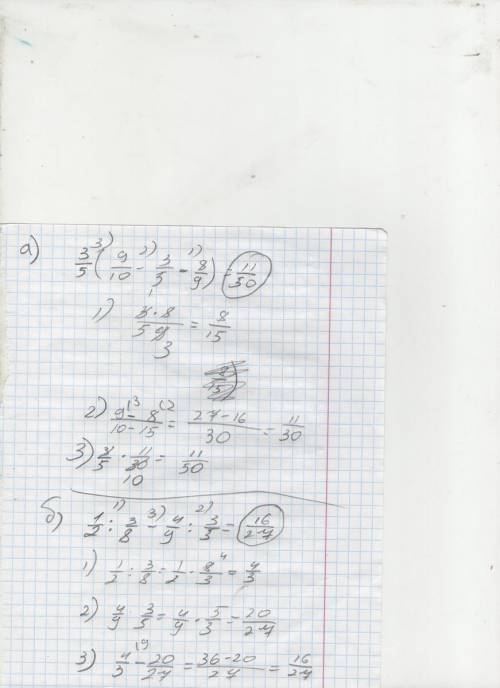 а) 3/5 (9/10 - 3/5 · 8/9) = 11/50
1) 3·8 / 5·9 = 8/15
2) 9/10 - 8/15 = (27-16)/30 = 11/30
3) 3/5 · 11/30 = 11/50
б) 1/2 : 3/8 - 4/9 : 3/5 = 16/27
1) 1/2 : 3/8 = 1/2 · 8/3 = 4/3
2) 4/9 : 3/5 = 4/9 · 5/3 = 20/27
3) 4/3 - 20/27 = (36-20)/27 = 16/27